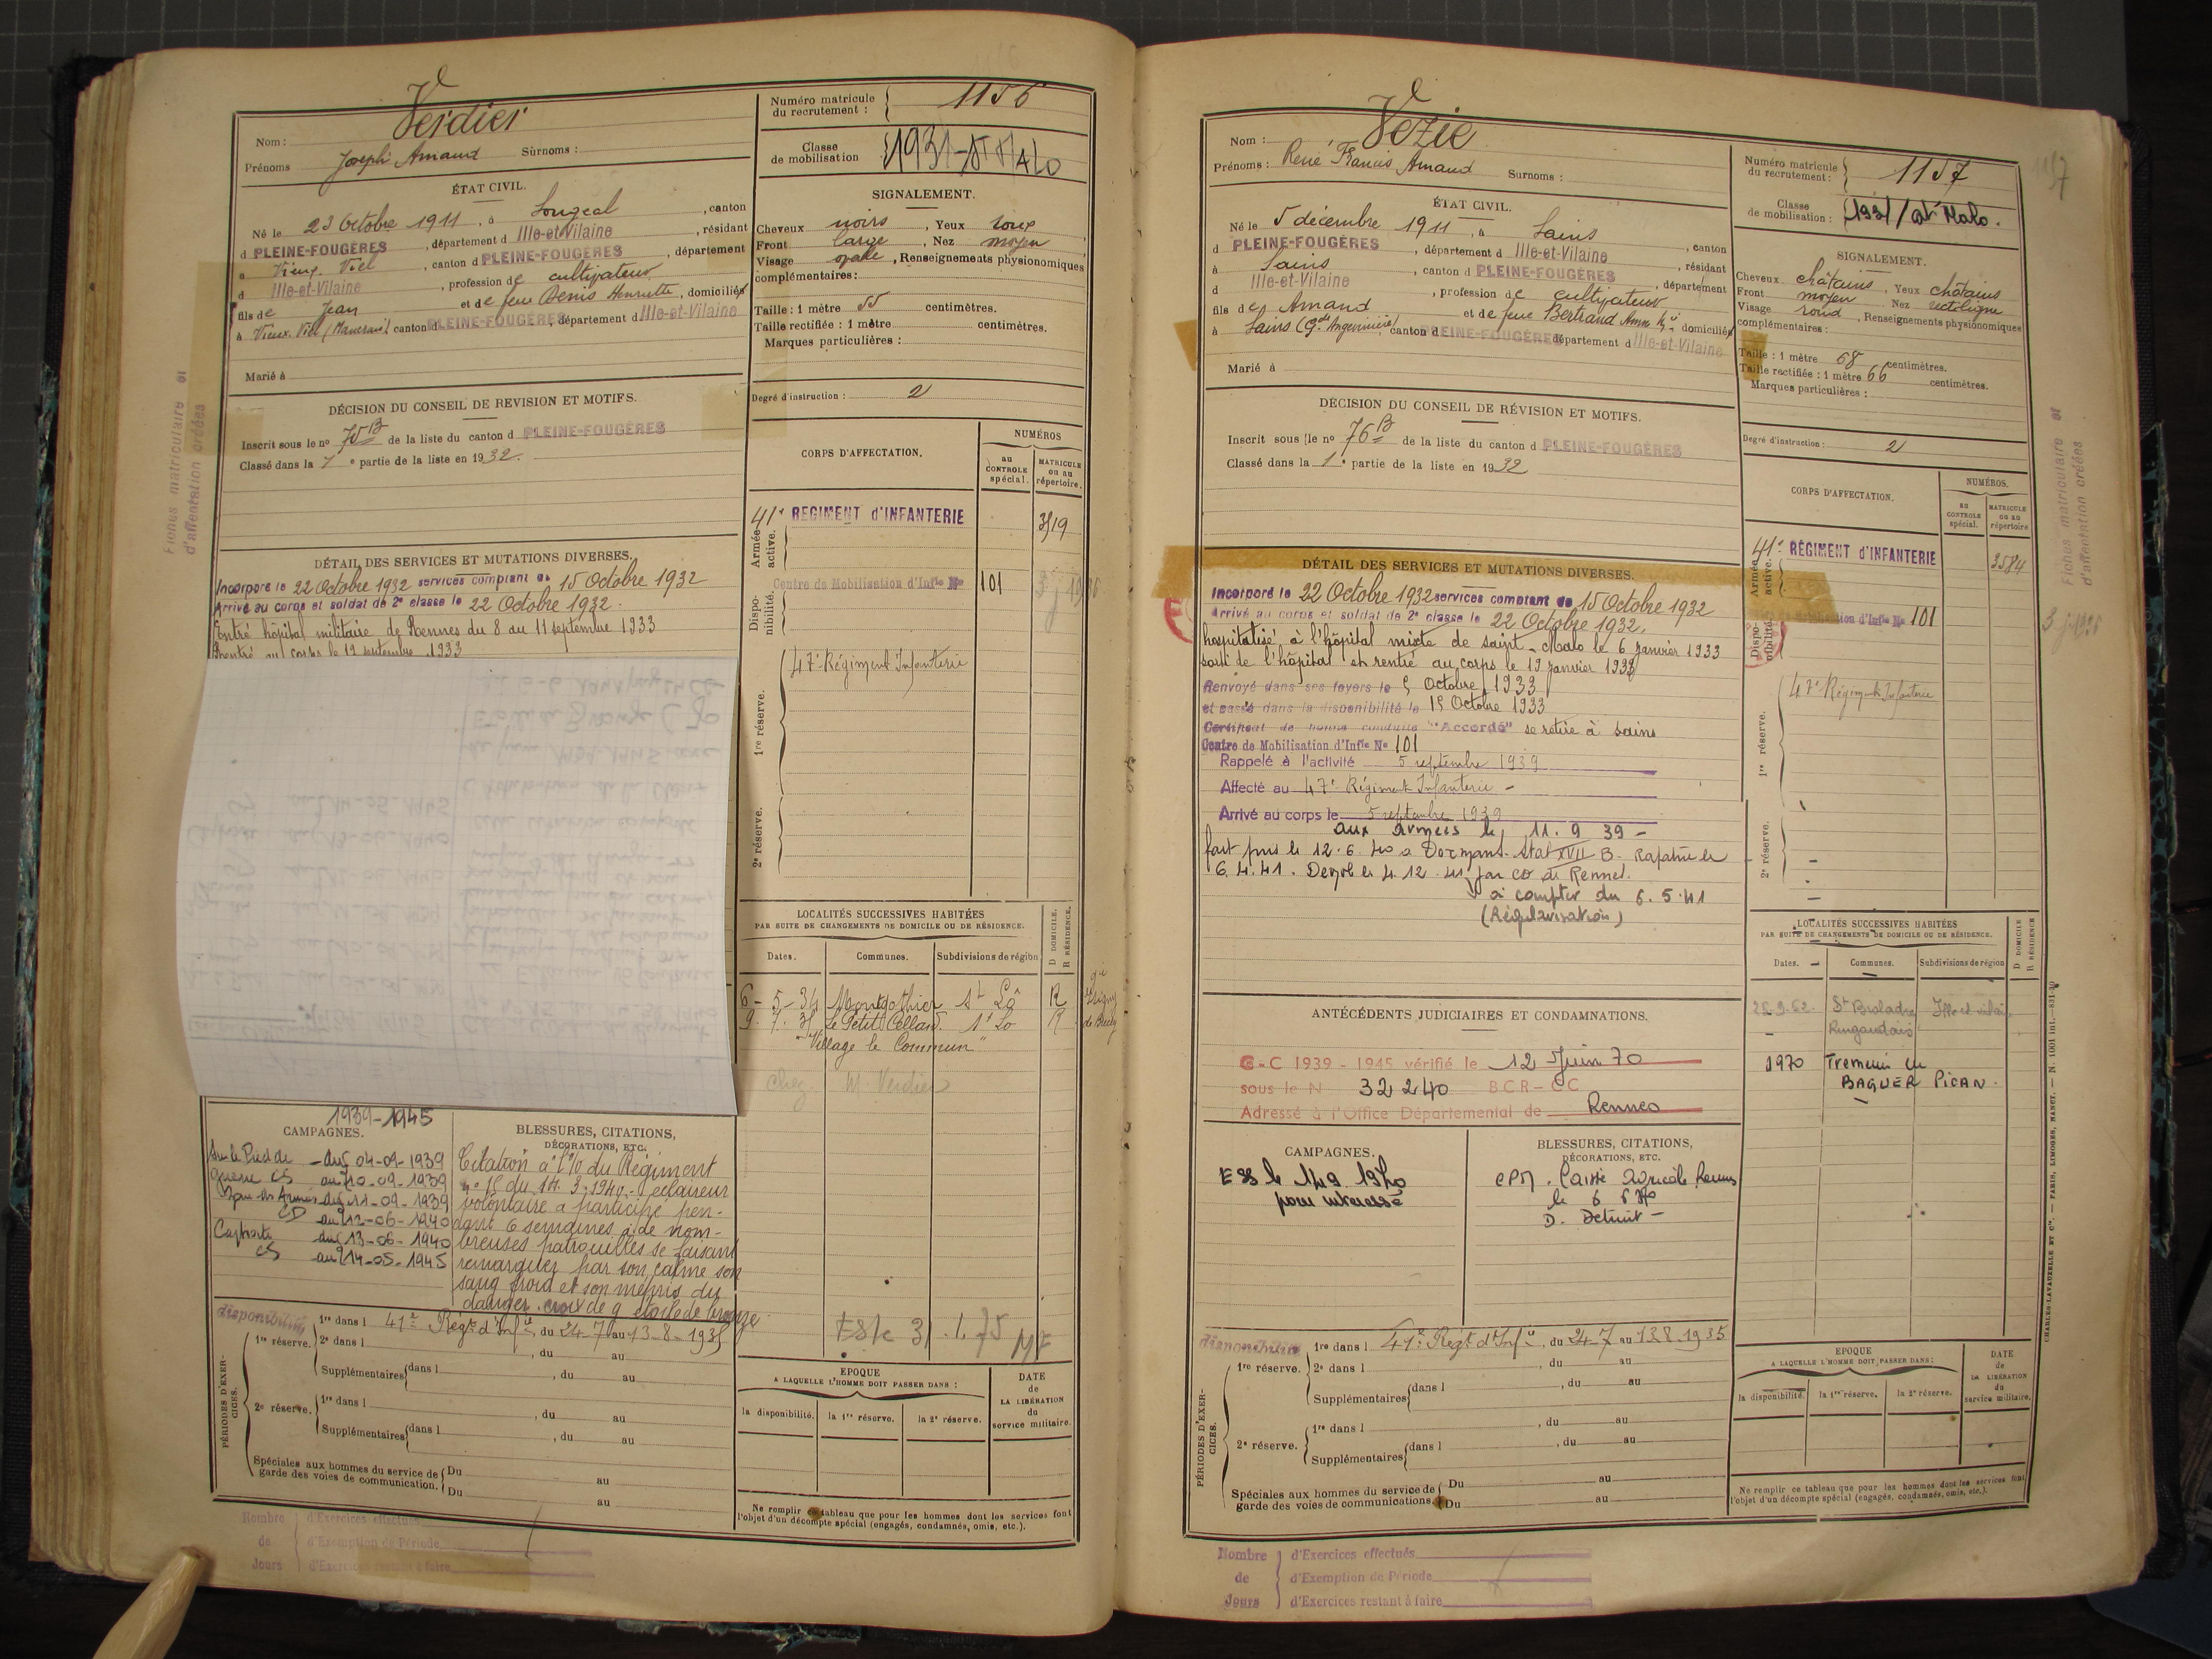 Nom : Verdier
Prénoms Joseph Amand Surnoms :
ÉTAT CIVIL.
Né le 23 Octobre 1911, à Sougeal, canton
d PLEINE-FOUGÈRES, département d Ille-et-Vilaine, résidant
à Vieux-Viel, canton d PLEINE-FOUGÈRES, département
d Ille-et-Vilaine, profession de cultivateur
fils de Jean et de feue Denis Henriette, domiciliés
à Vieux-Viel canton PLEINE-FOUGÈRES, département d Ille-et-Vilaine
Marié à
DÉCISION DU CONSEIL DE REVISION ET MOTIFS.
Inscrit sous le nº 75 B de la liste du canton d PLEINE-FOUGÈRES
Classé dans la 1e partie de la liste en 1932.
DÉTAIL DES SERVICES ET MUTATIONS DIVERSES.
Incorporé le 22 Octobre 1932 services comptant du 15 Octobre 1932
Arrivé au corps et soldat de 2e classe le 22 Octobre 1932.
Entré hôpital militaire de Rennes du 8 au 11 septembre 1933
Rentré au corps le 12 septembre 1933
1939-1945
CAMPAGNES.
Sur le Pied de du 04-09-1939
guerre CS au 10-09-1939
Zone des Armées du 11-09-1939
CD au 12-06-1940
Captivité du 13-06-1940
CS au 14-05-1945
BLESSURES, CITATIONS,
DÉCORATIONS, ETC.
Citation à l'O/ du Régiment
nº 15 du 14.3.1940. éclaireur
volontaire a participé pen-
dant 6 semaines à de nom-
breuses patrouilles se faisant
remarquer par son calme son
sang froid et son mépris du
danger. croix de g étoile de bronze.
PÉRIODES D'EXERCICES.
disponibilité
1re réserve. 1re dans l 41e Régt d'Infie, du 24-7 au 13-8-1935
2e dans l , du au
Supplémentaires dans l , du au
2e réserve. 1re dans l , du au
Supplémentaires dans l , du au
Spéciales aux hommes du service de
garde des voies de communication. Du au
Du au
Nombre de Jours
d'Exercices effectués
d'Exemption de Période
d'Exercices restant à faire
Numéro matricule
du recrutement : 1156
Classe
de mobilisation 1931-St MALO
SIGNALEMENT.
Cheveux noirs, Yeux roux
Front large, Nez moyen
Visage ovale, Renseignements physionomiques
complémentaires :
Taille : 1 mètre 55 centimètres.
Taille rectifiée : 1 mètre centimètres.
Marques particulières :
Degré d'instruction : 2
CORPS D'AFFECTATION.
NUMÉROS
au CONTROLE spécial.
MATRICULE ou au répertoire.
Armée active.
41e REGIMENT d'INFANTERIE 3519
Disponibilité.
Centre de Mobilisation d'Infie Nº 101
1re réserve.
47e Régiment Infanterie
2e réserve.
LOCALITÉS SUCCESSIVES HABITÉES
PAR SUITE DE CHANGEMENTS DE DOMICILE OU DE RÉSIDENCE.
Dates. Communes. Subdivisions de région D DOMICILE. R RÉSIDENCE.
6-5-34 Montgothier St Lô R
9.7.35 Le Petit Celland St Lo R
"Village le Commun"
chez M. Verdier
ESlc 31.1.75
EPOQUE
A LAQUELLE L'HOMME DOIT PASSER DANS :
la disponibilité. la 1re réserve. la 2e réserve.
DATE de LA LIBÉRATION du service militaire.
Ne remplir ce tableau que pour les hommes dont les services font
l'objet d'un décompte spécial (engagés, condamnés, omis, etc.).
Fiches matriculaire et
d'affectation créées
Nom : Vezie
Prénoms : René Francis Amand Surnoms :
ÉTAT CIVIL.
Né le 5 décembre 1911, à Sains, canton
d PLEINE-FOUGÈRES, département d Ille-et-Vilaine, résidant
à Sains, canton d PLEINE-FOUGÈRES, département
d Ille-et-Vilaine, profession de cultivateur
fils de Amand et de feue Bertrand Anne Mie domiciliés
à Sains canton d PLEINE-FOUGÈRES département d Ille-et-Vilaine
Marié à
DÉCISION DU CONSEIL DE RÉVISION ET MOTIFS.
Inscrit sous le nº 76 B de la liste du canton d PLEINE-FOUGÈRES
Classé dans la 1e partie de la liste en 1932
DÉTAIL DES SERVICES ET MUTATIONS DIVERSES.
Incorporé le 22 Octobre 1932 services comptant de 15 Octobre 1932
Arrivé au corps et soldat de 2e classe le 22 Octobre 1932.
hospitalisé à l'hôpital mixte de saint-Malo le 6 janvier 1933
sorti de l'hôpital et rentré au corps le 19 janvier 1933
Renvoyé dans ses foyers le 5 Octobre 1933
et passé dans la disponibilité le 15 Octobre 1933
Certificat de bonne conduite "Accordé" se retire à Sains
Centre de Mobilisation d'Infie Nº 101
Rappelé à l'activité 5 septembre 1939
Affecté au 47e Régiment Infanterie -
Arrivé au corps le 5 septembre 1939
aux armées le 11.9.39 -
fait pris le 12.6.40 a Dormans. Stal XVII B. Rapatrié le
6.4.41. Démob le 4.12.41 par CD de Rennes.
à compter du 6.5.41
(Régularisation)
ANTÉCÉDENTS JUDICIAIRES ET CONDAMNATIONS.
C-C 1939-1945 vérifié le 12 Juin 70
sous le N 32240 BCR-CC
Adressé à l'Office Départemental de Rennes
CAMPAGNES.
ESS le 14 9 1970
pour intéressé
BLESSURES, CITATIONS,
DÉCORATIONS, ETC.
EPM. Caisse Agricole Rennes
D. Detruit -
PÉRIODES D'EXERCICES.
disponibilité
1re réserve. 1re dans l 41e Régt d'Infie, du 24-7 au 13.8.1935
2e dans l , du au
Supplémentaires dans l , du au
2e réserve. 1re dans l , du au
Supplémentaires dans l , du au
Spéciales aux hommes du service de
garde des voies de communications. Du au
Du au
Nombre de Jours
d'Exercices effectués
d'Exemption de Période
d'Exercices restant à faire
Numéro matricule
du recrutement : 1157
1157
Classe
de mobilisation : 1931/St Malo.
SIGNALEMENT.
Cheveux châtains, Yeux châtains
Front moyen, Nez rectiligne
Visage rond, Renseignements physionomiques
complémentaires :
Taille : 1 mètre 68 centimètres.
Taille rectifiée : 1 mètre 66 centimètres.
Marques particulières :
Degré d'instruction : 2
CORPS D'AFFECTATION.
NUMÉROS.
au CONTROLE spécial.
MATRICULE ou au répertoire
Armée active.
41e RÉGIMENT d'INFANTERIE 3584
Disponibilité
d'Infie Nº 101
1re réserve.
47e Régiment Infanterie
2e réserve.
LOCALITÉS SUCCESSIVES HABITÉES
PAR SUITE DE CHANGEMENTS DE DOMICILE OU DE RÉSIDENCE.
Dates. Communes. Subdivisions de région D DOMICILE R RÉSIDENCE
St Broladre Ille et Vilaine
1970 Tremeui en
BAGUER PICAN.
EPOQUE
A LAQUELLE L'HOMME DOIT PASSER DANS :
la disponibilité. la 1re réserve. la 2e réserve.
DATE de LA LIBÉRATION du service militaire.
Ne remplir ce tableau que pour les hommes dont les services font
l'objet d'un décompte spécial (engagés, condamnés, omis, etc.).
Fiches matriculaire et
d'affectation créées
CHARLES-LAVAUZELLE ET Cie. — PARIS, LIMOGES, NANCY. — N. 1001 int.—831-30